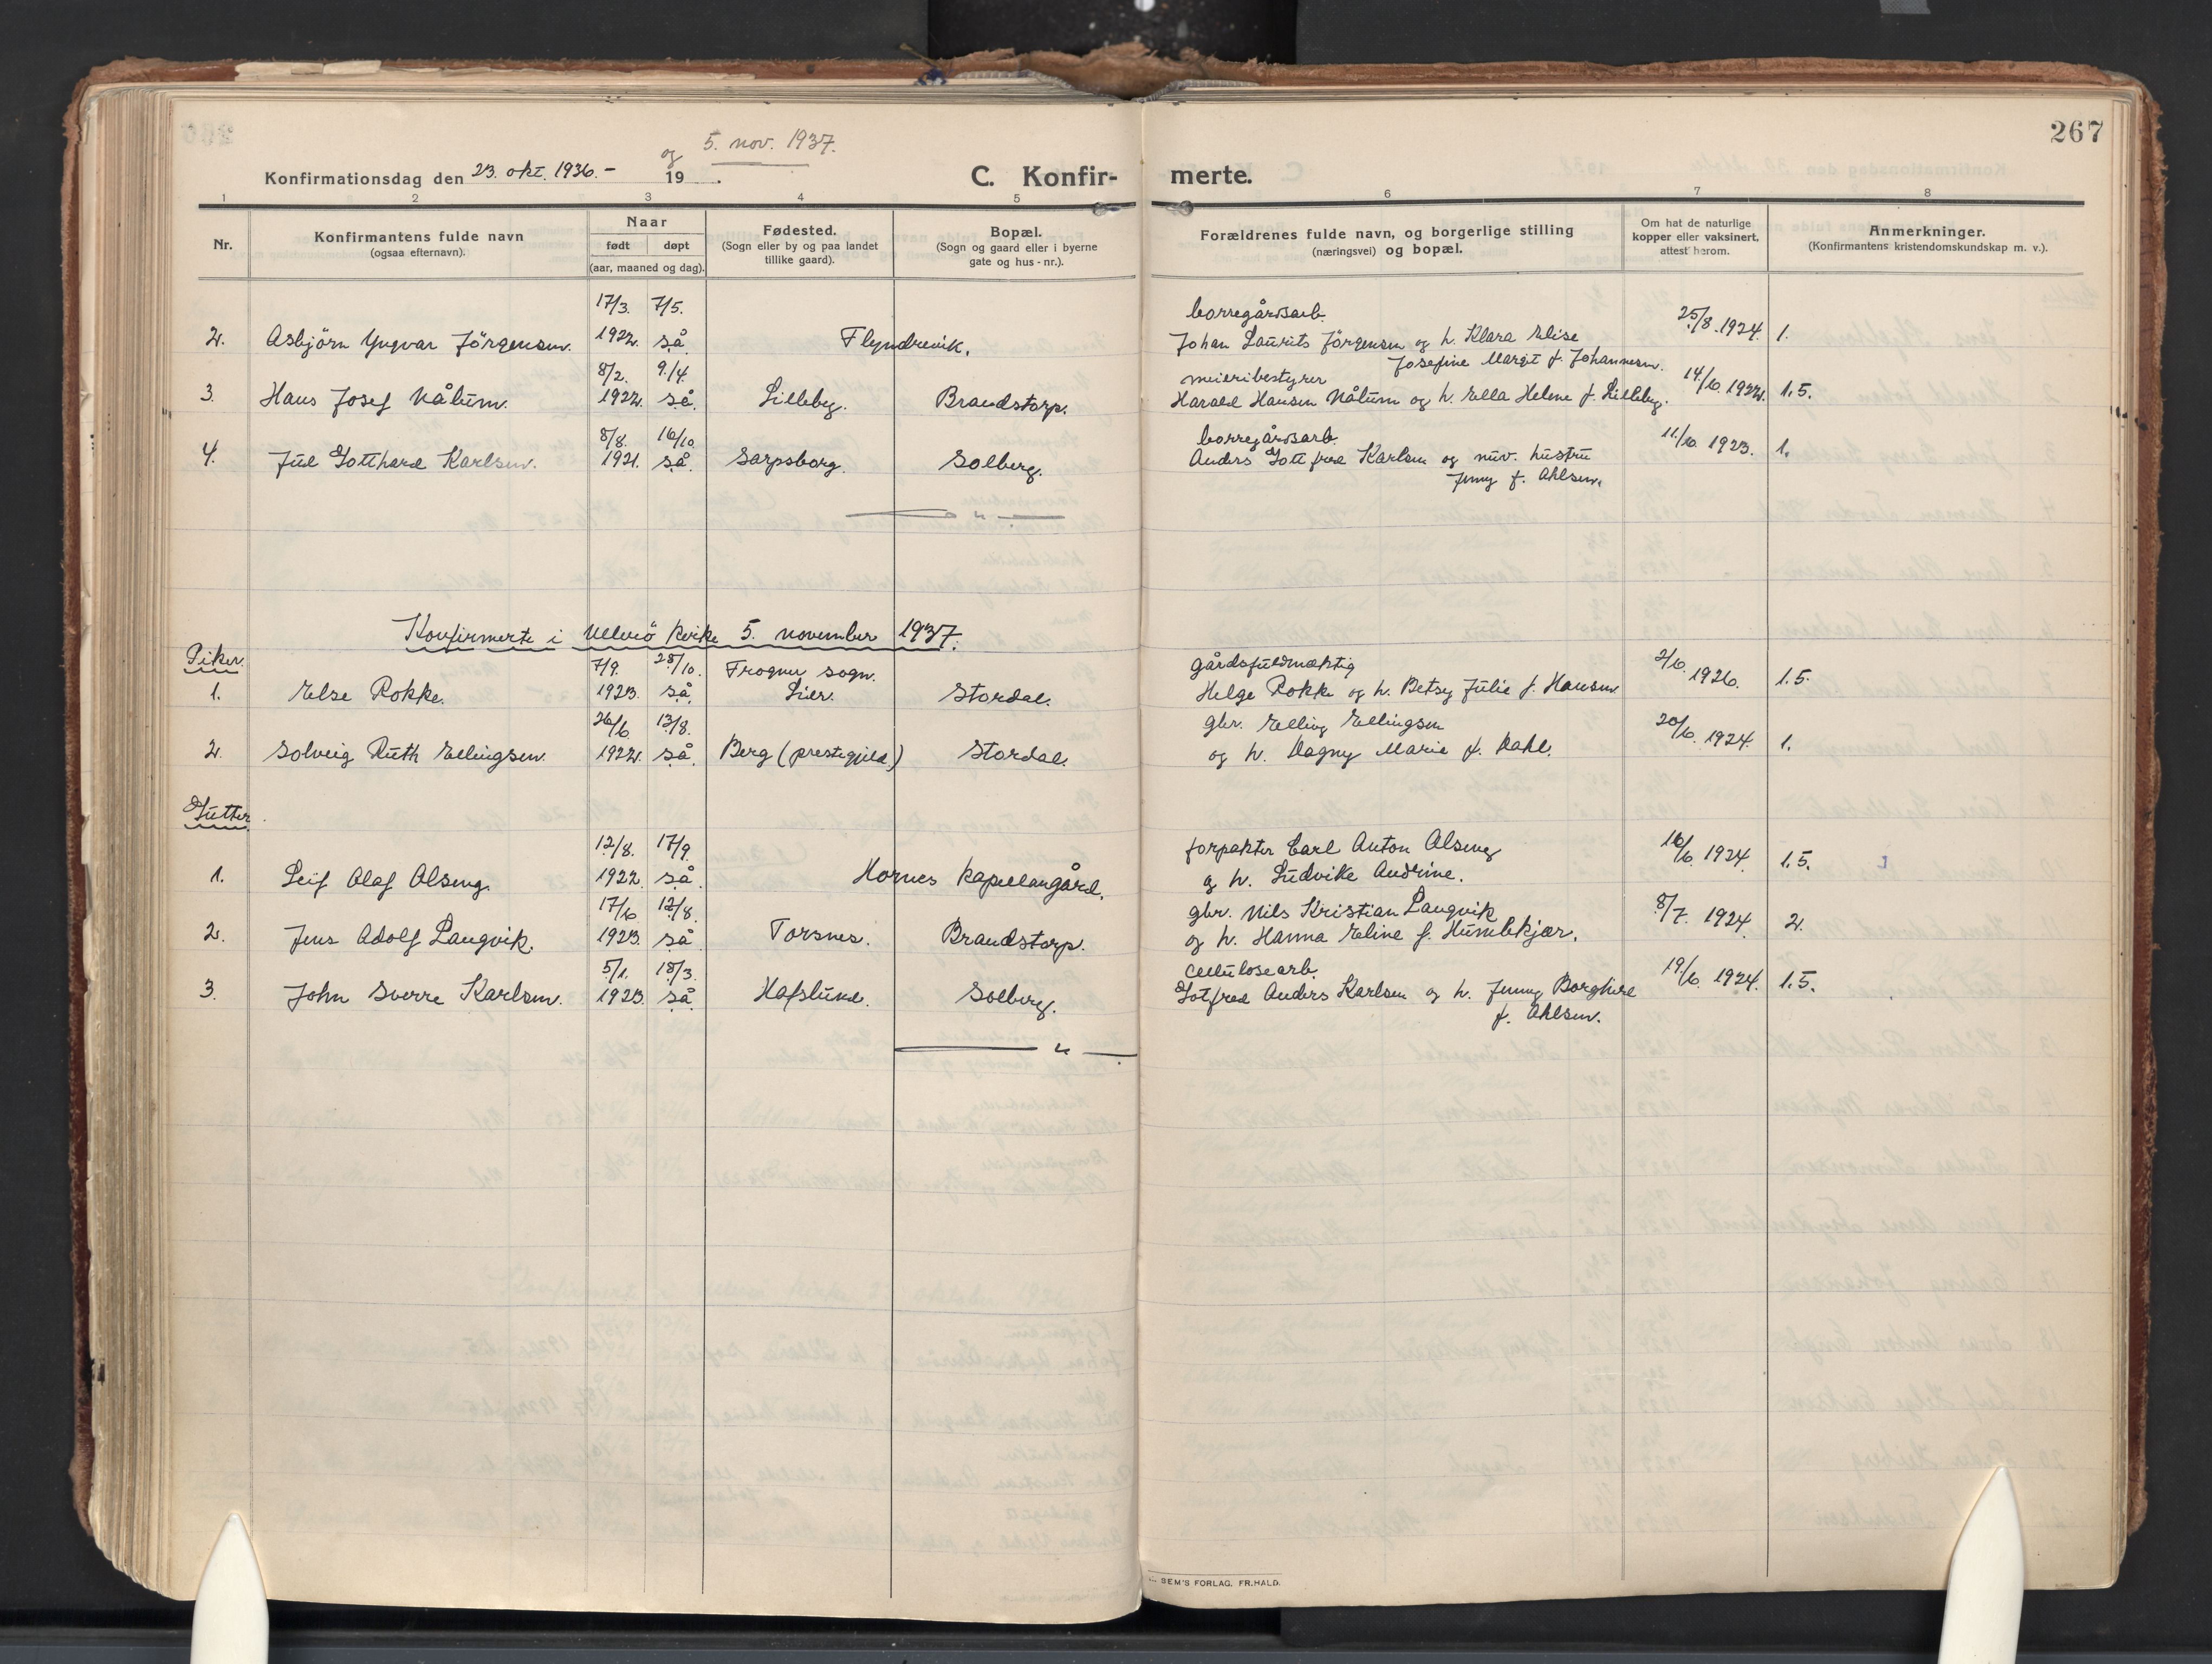 267
og 5. nov. 1937.
Konfirmationsdag den 23. okt. 1936.- 19 .
C. Konfir- merte.
1 2 3 4 5 6 7 8
Nr.
Konfirmantens fulde navn
(ogsaa efternavn).
Naar
født døpt
(aar, maaned og dag).
Fødested.
(Sogn eller by og paa landet
tillike gaard).
Bopæl.
(Sogn og gaard eller i byerne
gate og hus-nr.).
Forældrenes fulde navn, og borgerlige stilling
(næringsvei) og bopæl.
Om hat de naturlige
kopper eller vaksinert,
attest herom.
Anmerkninger.
(Konfirmantens kristendomskundskap m. v.).
17/3. 7/5. borregårdsarb. 25/8. 1924. 1.
2. Asbjörn Yngvar Jörgensen. 1922. så. Flyndrevik. Johan Laurits Jörgensen og h. Klara Elise
Josefine Margit f. Johannesen.
8/2. 9/4. meieribestyrer 14/6. 1922. 1.5.
3. Hans Josef Nålum. 1922. så. Lilleby. Brandstorp. Harald Hansen Nålum og h. Ella Helene f. Lilleby.
8/8. 16/10 borregårdsarb. 11/6. 1923. 1.
4. Jul Gotthard Karlsen. 1921. så. Sarpsborg. Solberg. Anders Gottfred Karlsen og nuv. hustru
Jenny f. Ahlsen.
— " —
Konfirmerte i Ullerö kirke 5. november 1937.
Piker.
7/9. 28/10. Frogner sogn. gårdsfuldmektig 2/6. 1926. 1.5.
1. Else Rokke. 1923. så. Lier. Stordal. Helge Rokke og h. Betsy Julie f. Hansen
26/6 13/8. gbr. Elling Ellingsen 20/6. 1924. 1.
2. Solveig Ruth Ellingsen. 1922. så. Berg (prestegjeld.) Stordal. og h. Dagny Marie f. Dahl.
Gutter.
12/8. 17/9. forpakter Carl Anton Alseng 16/6. 1924. 1.5.
1. Leif Olaf Alseng. 1922. så. Hornes kapellangård. og h. Ludvike Andrine.
17/6 12/8. gbr. Nils Kristian Langvik 8/7. 1924. 2.
2. Jens Adolf Langvik. 1923. så. Torsnes. Brandstorp. og h. Hanna Eline f. Humlekjær.
5/1. 18/3. cellulosearb. 19/6. 1924. 1.5.
3. John Sverre Karlsen. 1923. så. Hafslund. Solberg. Gotfred Anders Karlsen og h. Jenny Borghild
f. Ahlsen.
— " —
SEM'S FORLAG, FR.HALD.